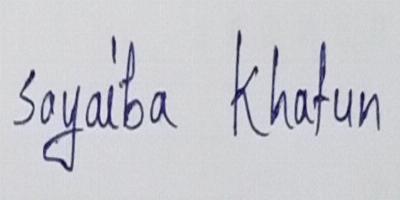 Soyaiba Khatun